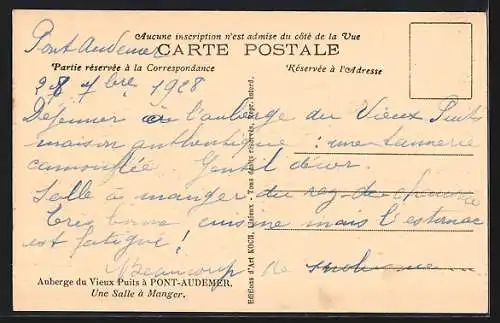 Aucune inscription n'est admise du côté de la Vue
CARTE POSTALE
Partie réservée à la Correspondance
Réservée à l'Adresse
Pont Audemer
28 7bre 1928
Déjeuner à l'auberge du Vieux Puits
maison authentique : une tannerie
camouflée. Gentil décor.
Salle à manger du rez de chaussée
Très bonne cuisine mais l'estomac
est fatigué !
Beaucoup de
Auberge du Vieux Puits à PONT-AUDEMER.
Une Salle à Manger.
Editions d'Art KOCH, Lisieux. - Tous droits réservés.